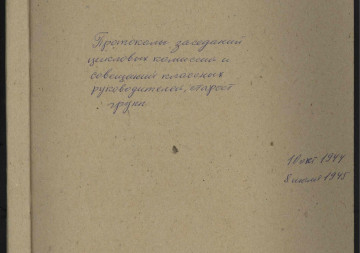 Протоколы заседаний
цикловых комиссий и
совещаний классных
руководителей, старост
групп
1 окт 1944
8 июля 1945